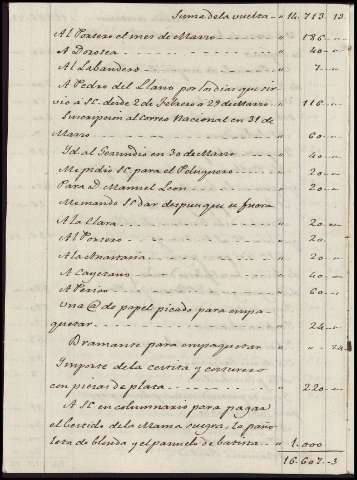 Suma de la vuelta - " 14.713. 13.
Al Portero el mes de Marzo - - - " 186 - "
A Dorotea - - - " 40 - "
Al Labandero - - - " 7 - "
A Pedro del Llano por los dias que sir
vio a S.E. desde 2 de Febrero a 29 de Marzo " 116 - "
Suscripcion al Correo Nacional en 31 de
Marzo - - - " 60 - "
Yd. al Gerundio en 30 de Marzo - - " 40 - "
Me pidio S.E. para el Peluquero - - - " 20 - "
Para D. Manuel Leon - - - " 20 - "
Me mando S.E. dar despues que se fuera
A la Clara - - - " 20 - "
Al Portero - - - " 20
A la - - - " 20 - "
A Cayetano - - - " 40 - "
A Perico - - - " 60 - "
Una @ de papel picado para empa
quetar - - - " 24 - "
Bramante para empaquetar " - " 24
Ymporte de la cestita y costurero
con piezas de plata - - - " 220 - "
A S.E. en columnario para pagar
el Vestido de la Mama suegra, la paño
leta de blonda y el panuelo de batista - " 1.000
16.607 - 3